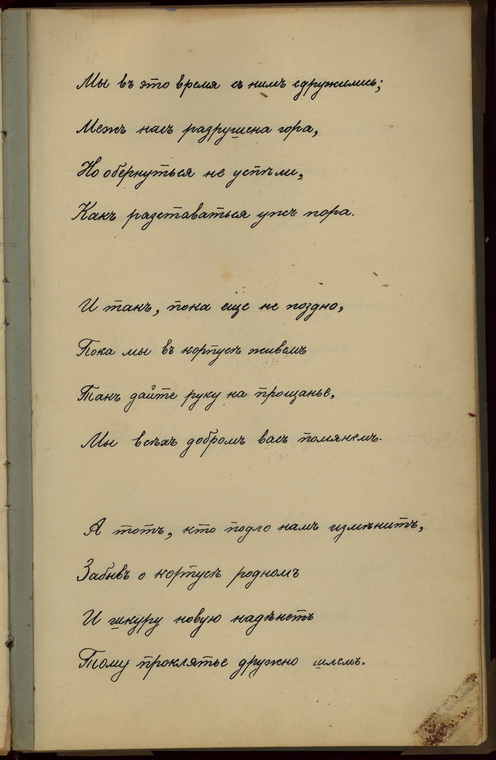 Мы въ это время съ нимъ сдружились;
Межъ насъ разрушена гора,
Но обернуться не успѣли,
Какъ разставаться ужъ пора.
И такъ, пока еще не поздно,
Пока мы въ корпусѣ живемъ
Такъ дайте руку на прощанье,
Мы всѣхъ добромъ васъ помянемъ.
А тотъ, кто подло намъ измѣнитъ,
Забывъ о корпусѣ родномъ
И шкуру новую надѣнетъ
Тому проклятье дружно шлемъ.